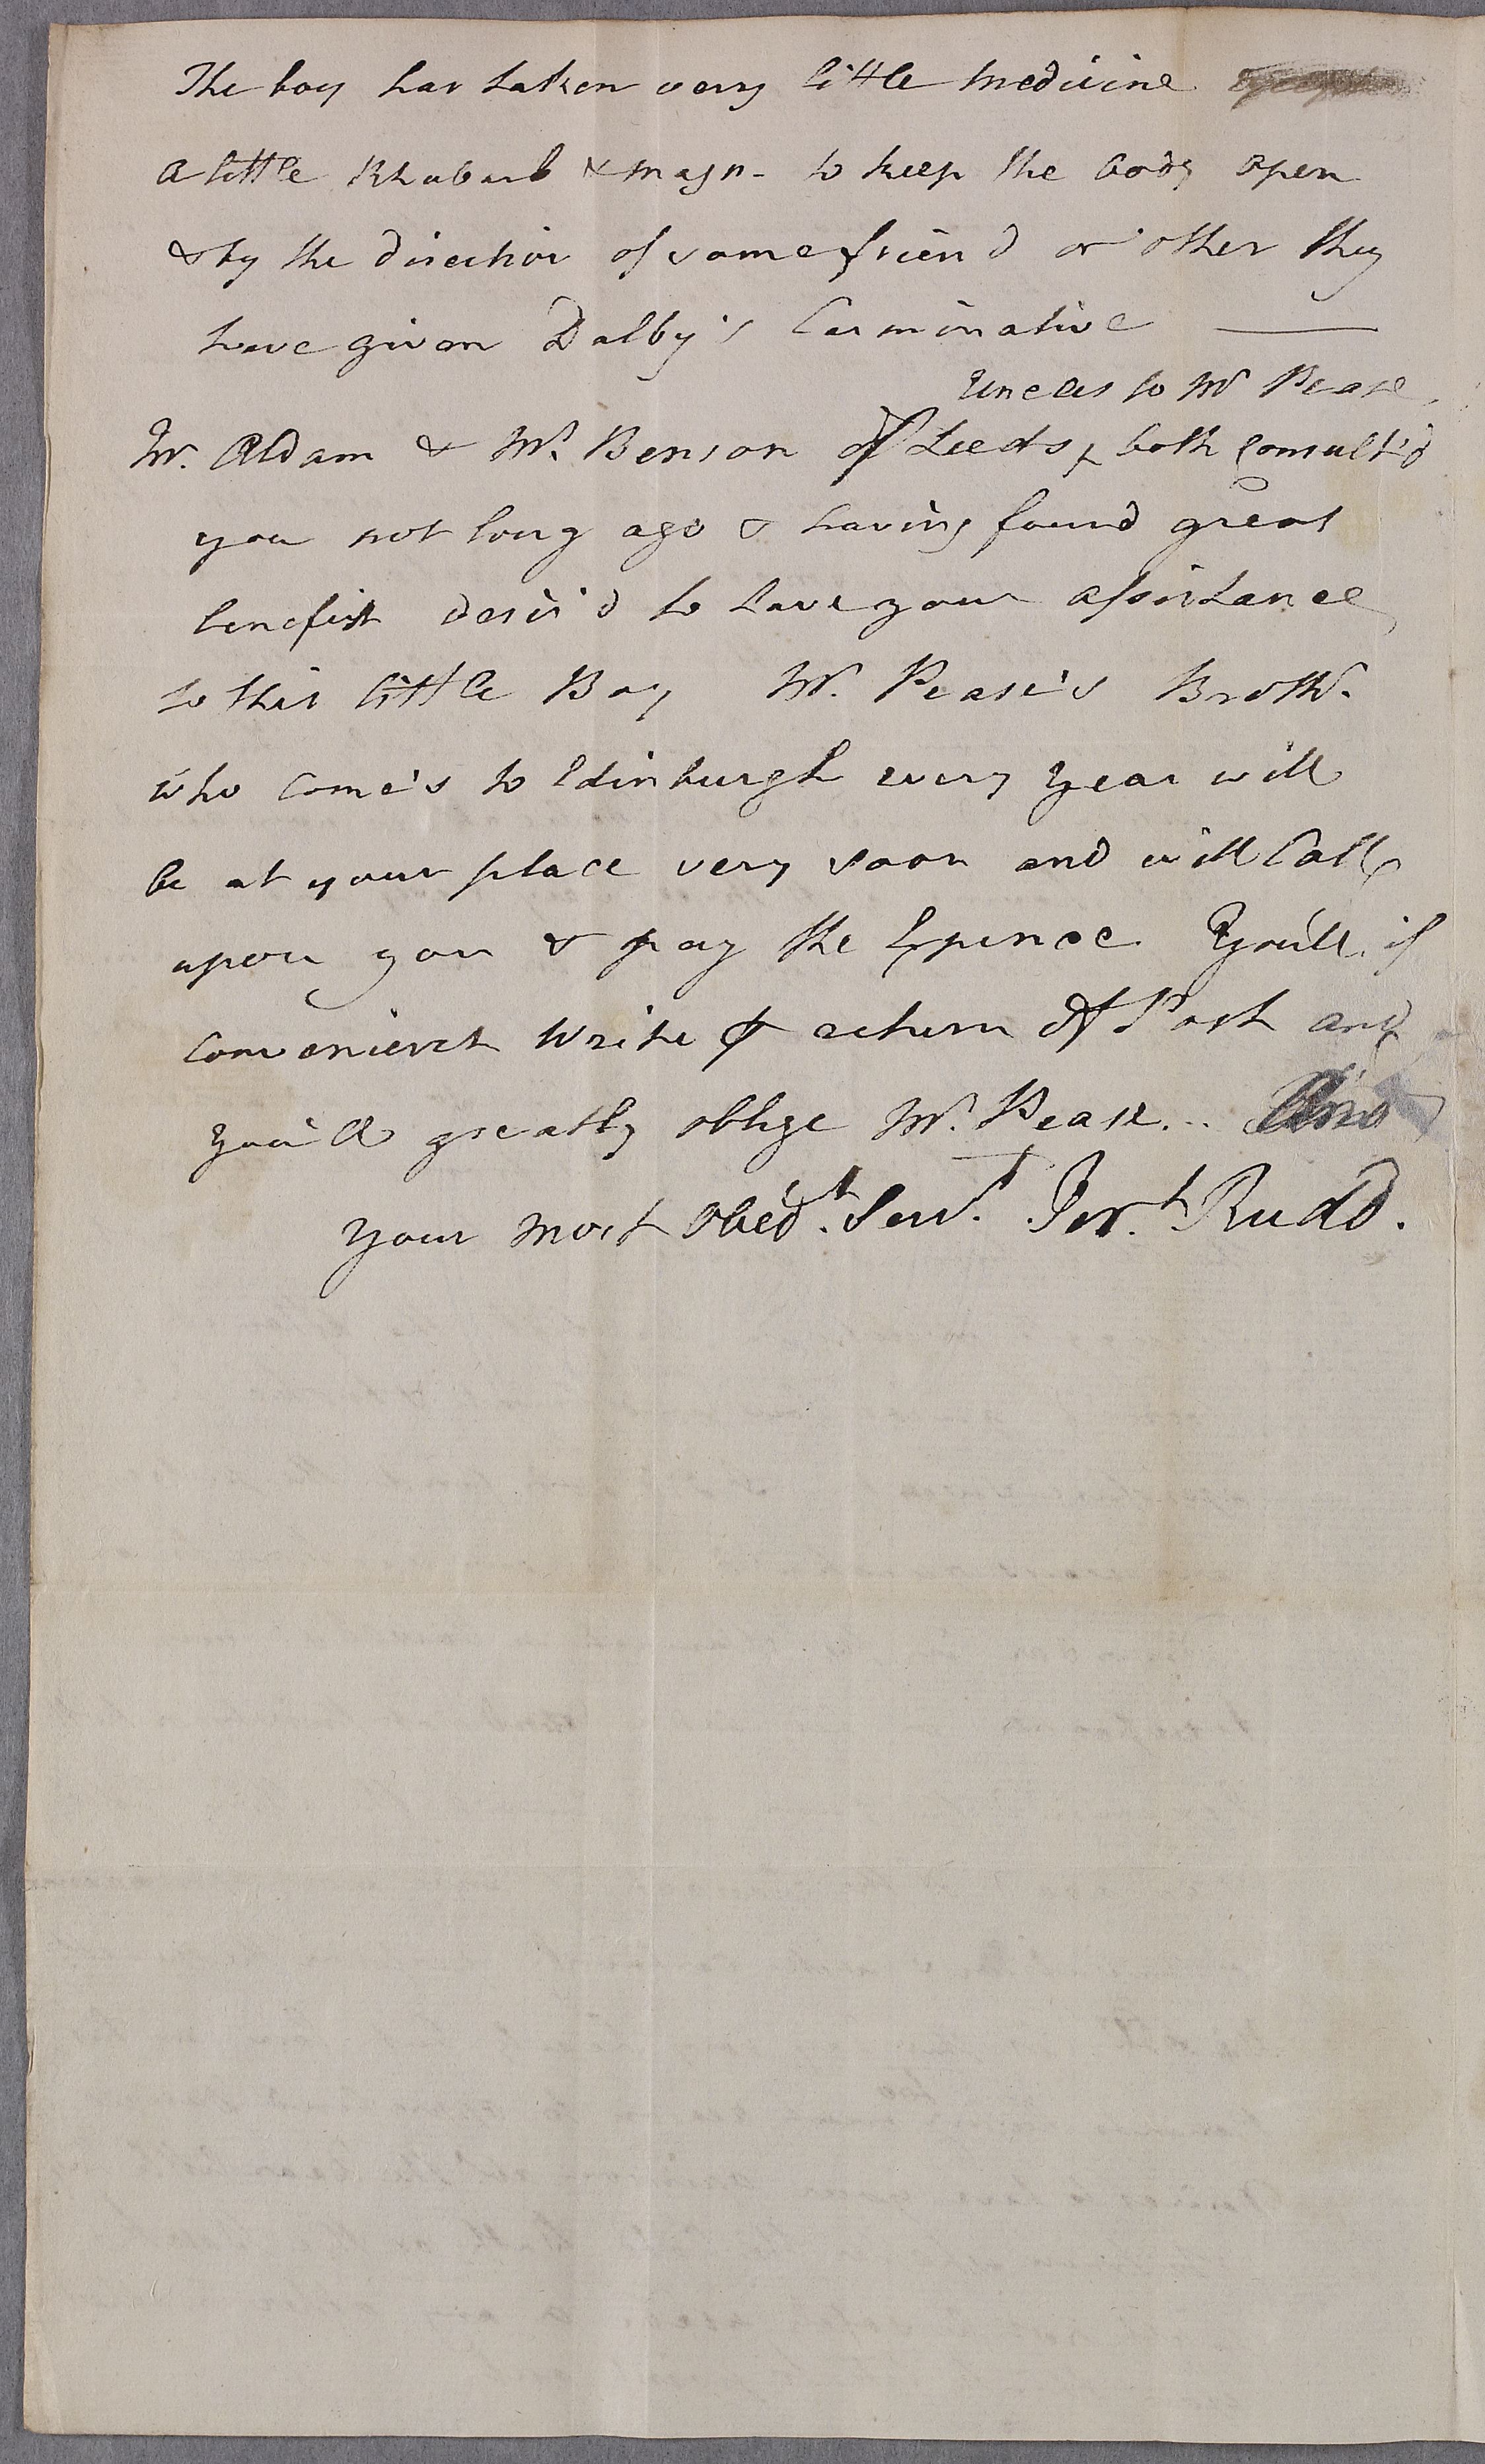 The boy has taken very little medicine except
a little Rhubarb & magn- to keep the body open
& by the direction of some friend or other they
have given Dalby's Carminative ———
Uncles to Mr Pease,
Mr. Aldam & Mr. Benson of Leeds, both Consult'd
you not long ago & having found great
benefit desir'd to have your assistance
to this little Boy Mr. Pease's Brothr.
who come's to Edinburgh every Year will
be at your place very soon and will Call
upon you & pay the Expence You'll if
convenient Write ⅌ return Of Post and
you'll greatly oblige Mr. Pease... And
Your most Obedt. Servt. Jerh. Rudd.